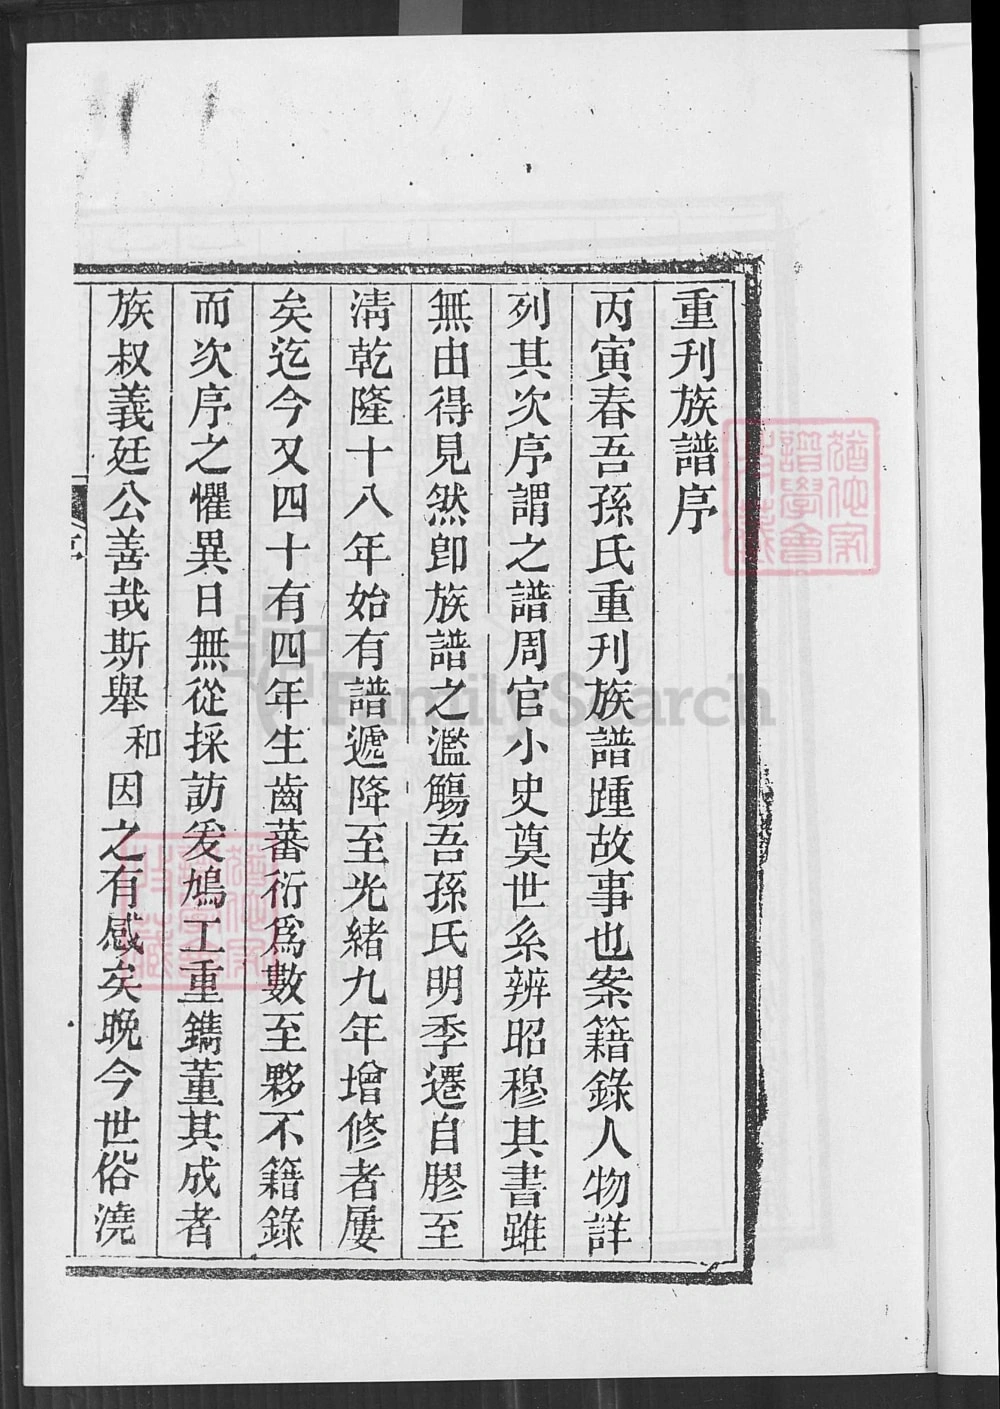 重刊族譜序
丙寅春吾孫氏重刊族譜踵故事也案籍錄人物詳
列其次序謂之譜周官小史奠世系辨昭穆其書雖
無由得見然卽族譜之濫觴吾孫氏明季遷自膠至
淸乾隆十八年始有譜遞降至光緒九年增修者屢
矣迄今又四十有四年生齒蕃衍爲數至夥不籍錄
而次序之懼異日無從採訪爰鳩工重鐫董其成者
族叔義廷公善哉斯舉和因之有感矣晚今世俗澆
FamilySearch